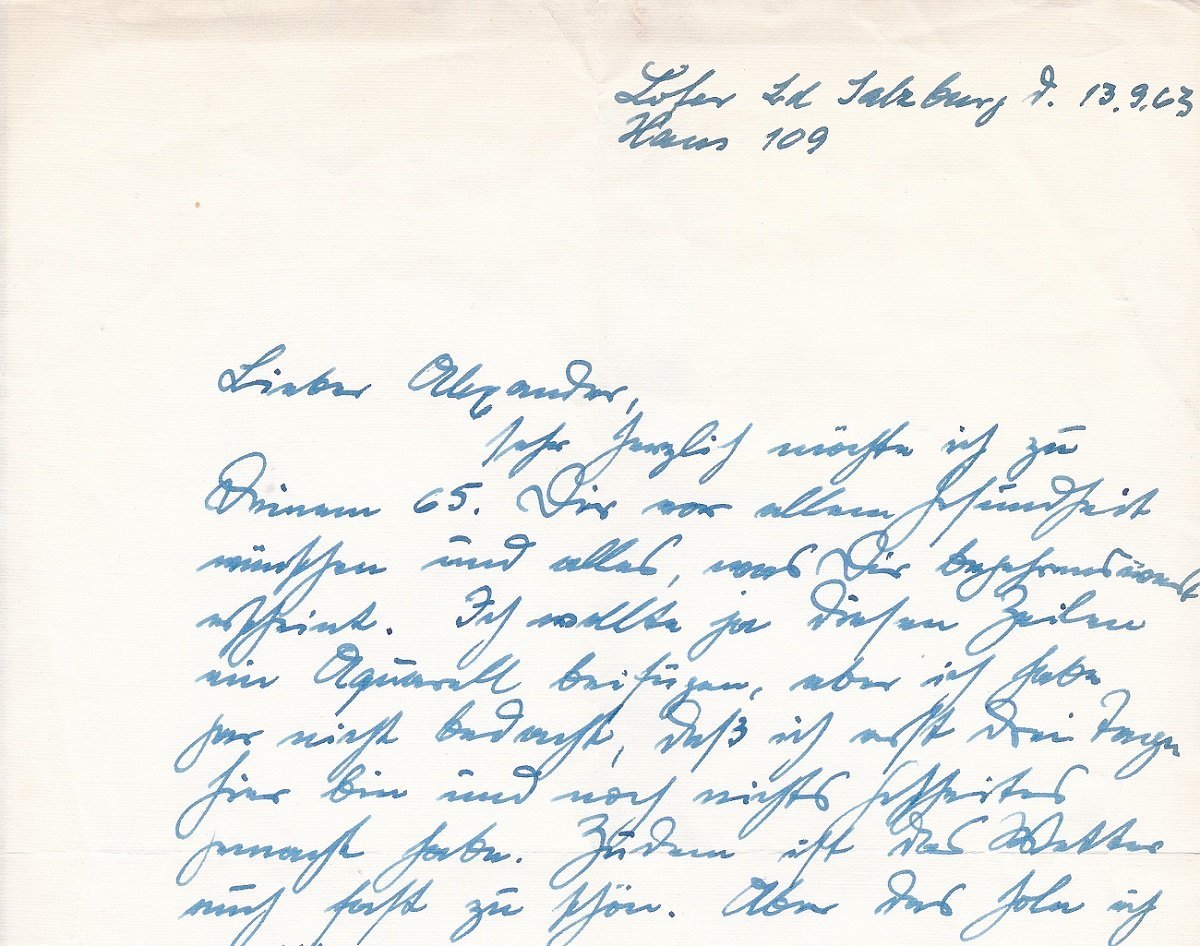 Lofer Ld Salzburg d. 13.9.63
Haus 109
Lieber Alexander,
sehr herzlich möchte ich zu
Deinem 65. Dir vor allem Gesundheit
wünschen und alles, was Dir begehrenswert
erscheint. Ich wollte ja diesen Zeilen
ein Aquarell beifügen, aber ich habe
gar nicht bedacht, daß ich erst drei Tage
hier bin und noch nichts gescheites
gemacht habe. Zudem ist das Wetter
auch fast zu schön. Aber das hole ich